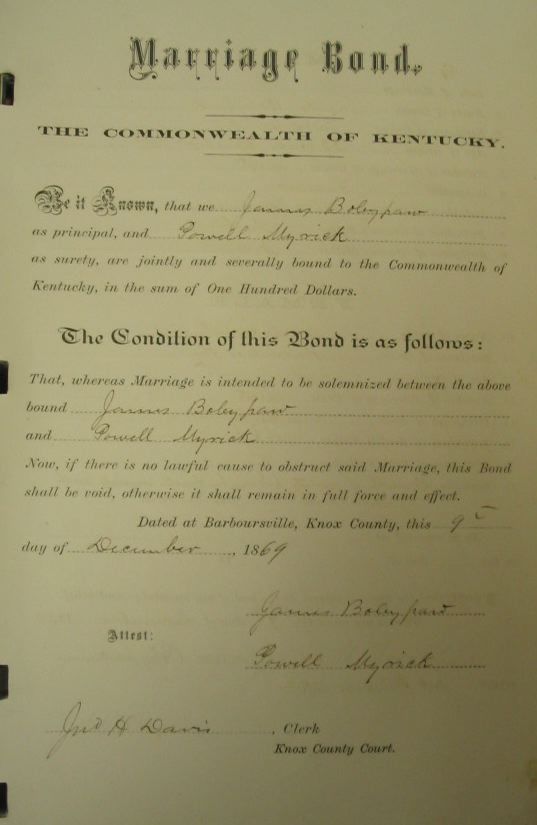 Marriage Bond.
THE COMMONWEALTH OF KENTUCKY.
Be it Known, that we James Boleypaw
as principal, and Powell Myrick
as surety, are jointly and severally bound to the Commonwealth of
Kentucky, in the sum of One Hundred Dollars.
The Condition of this Bond is as follows:
That, whereas Marriage is intended to be solemnized between the above
bound James Boleypaw
and Powell Myrick
Now, if there is no lawful cause to obstruct said Marriage, this Bond
shall be void, otherwise it shall remain in full force and effect.
Dated at Barboursville, Knox County, this 9th
day of December, 1869
James Boleypaw
Attest:
Powell Myrick
Jno H Davis, Clerk
Knox County Court.